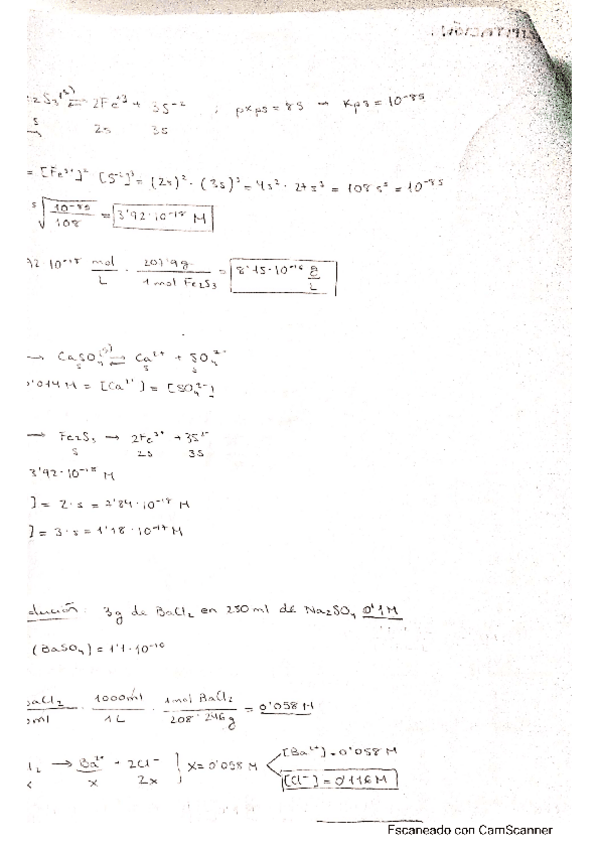 2S3(s) ⇌ 2Fe+3 + 3S-2 ; pKps = 85 → Kps = 10^-85
s 2s 3s
= [Fe3+]² [S-2]³ = (2s)² · (3s)³ = 4s² · 27s³ = 108 s⁵ = 10^-85
⁵√(10^-85/108) = 3'92·10^-18 M
92·10^-18 mol/L · 207'9g/1 mol Fe2S3 = 8'15·10^-16 g/L
→ CaSO4(s) ⇌ Ca2+ + SO4 2-
s s
0'014 M = [Ca2+] = [SO4 2-]
→ Fe2S3 → 2Fe3+ + 3S2-
s 2s 3s
3'92·10^-18 M
] = 2·s = 7'84·10^-18 M
] = 3·s = 1'18·10^-17 M
3g de BaCl2 en 250 ml de Na2SO4 0'1M
(BaSO4) = 1'1·10^-10
BaCl2/ml · 1000ml/1L · 1mol BaCl2/208'246g = 0'058 M
l2 → Ba2+ + 2Cl- } x = 0'058 M < [Ba2+] = 0'058 M
x 2x [Cl-] = 0'116 M
Escaneado con CamScanner